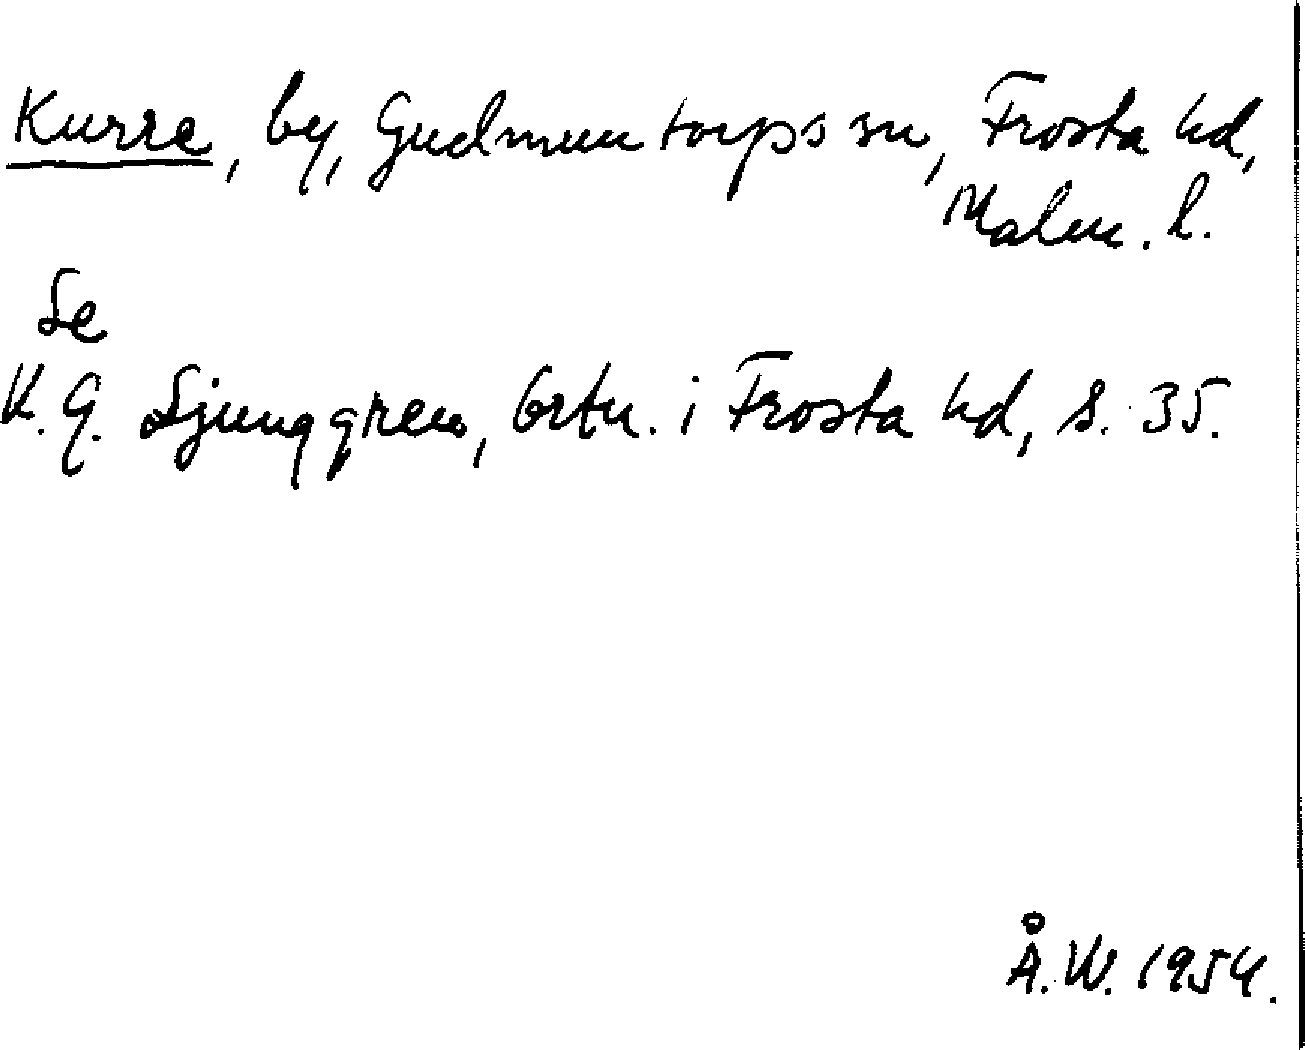 Kurre, by, Gudmuntorps sn, Frosta hd,
Malm. l.
Se
K. G. Ljunggren, Ortn. i Frosta hd, s. 35.
Å. W. 1954.